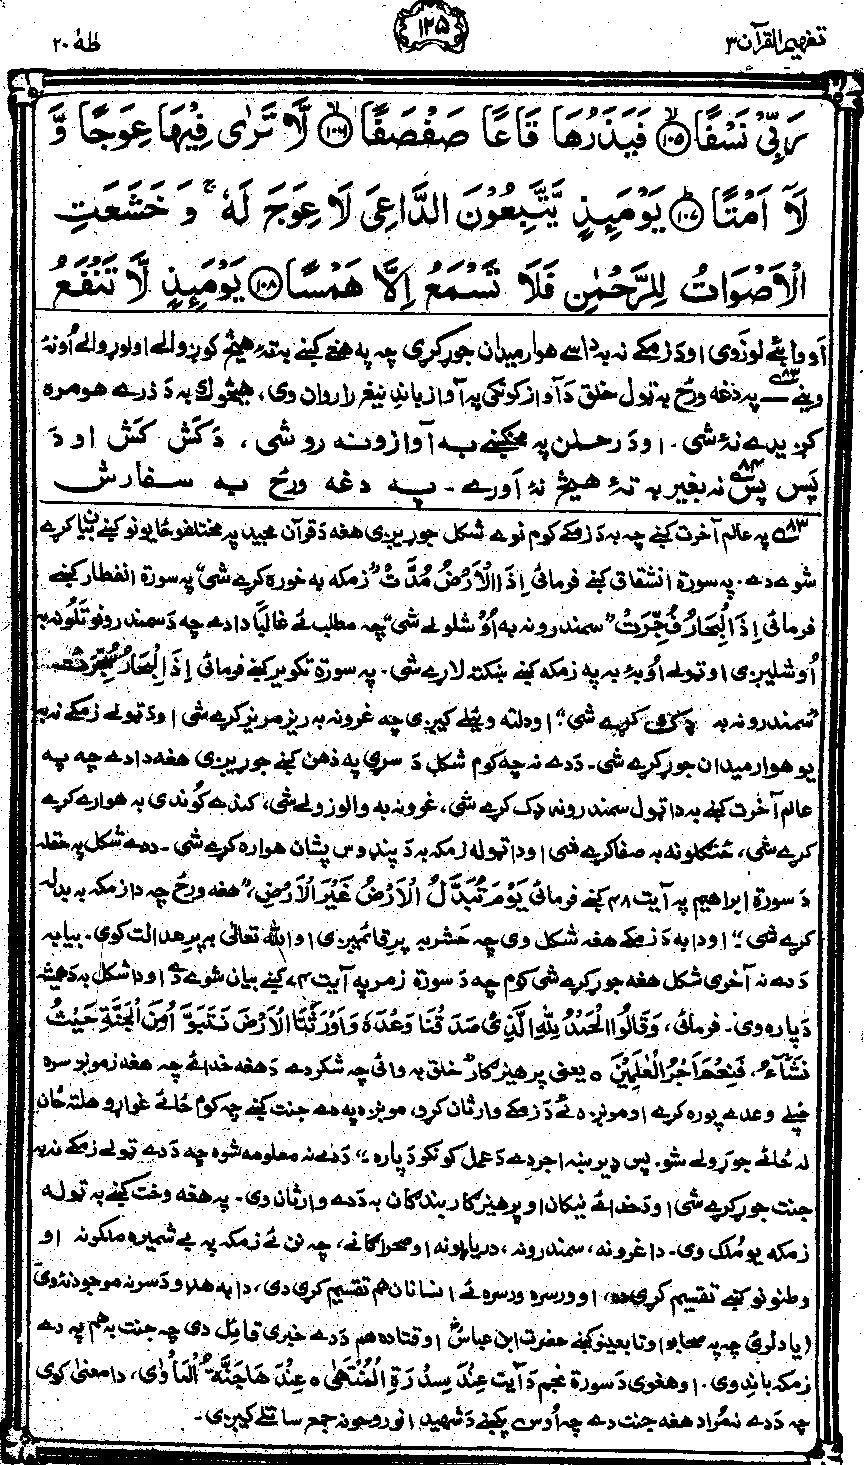 تفهيم القرآن ۳
۱۲۵
طٰهٰ ۲۰
رَبِّيْ نَسْفًا ﴿۱۰۵﴾ فَيَذَرُهَا قَاعًا صَفْصَفًا ﴿۱۰۶﴾ لَّا تَرٰى فِيْهَا عِوَجًا وَّ
لَآ اَمْتًا ﴿۱۰۷﴾ يَوْمَىِٕذٍ يَّتَّبِعُوْنَ الدَّاعِىَ لَا عِوَجَ لَهٗ ۚ وَ خَشَعَتِ
الْاَصْوَاتُ لِلرَّحْمٰنِ فَلَا تَسْمَعُ اِلَّا هَمْسًا ﴿۱۰۸﴾ يَوْمَىِٕذٍ لَّا تَنْفَعُ
او دا به ئے لوزوی او د زمکے نه به داسے هوار ميدان جوړ کړی چه په هغے کښے به تهٔ هيڅ کوږ والے او لوړ والے اُو نهٔ
وينے ۸۳ په دغه ورځ به ټول خلق د آواز کونکی په آواز باندِ نيغ را روان وی، هيڅوک به د ذرے هومره
کږيدے نهٔ شی. او د رحمٰن په مخکښے به آوازونه رو شی، د کَش کَش او د
پَس پَس ۸۴ نه بغير به تهٔ هيڅ نهٔ آورے. په دغه ورځ به سفارش
۸۳ په عالم آخرت کښے چه به د زمکے کوم نوے شکل جوړيږی هغه د قرآن مجيد په مختلفو ځايونو کښے بيان کړے
شوے دے. په سورة انشقاق کښے فرمائی اِذَا الْاَرْضُ مُدَّتْ "زمکه به خوره کړے شی" په سورة انفطار کښے
فرمائی اِذَا الْبِحَارُ فُجِّرَتْ "سمندرونه به اُو شلولے شی" چه مطلب ئے غالباً دا دے چه د سمندرونو تلونه به
اُو شليږی او ټولے اُوبهٔ به په زمکه کښے ښکته لاړے شی. په سورة تکوير کښے فرمائی اِذَا الْبِحَارُ سُجِّرَتْ
"سمندرونه به ډک کړے شی" او دلته وئيلے کيږی چه غرونه به ريز مريز کړے شی او د ټولے زمکے نه به
يو هوار ميدان جوړ کړے شی. د دے نه چه کوم شکل د سړی په ذهن کښے جوړيږی هغه دا دے چه په
عالم آخرت کښے به دا ټول سمندرونه ډک کړے شی، غرونه به والوزولے شی، کندے کُوندی به هوارے کړے
کړے شی، ځنګلونه به صفا کړے شی او دا ټوله زمکه به د پينډوس پشان هواره کړے شی. د دے شکل په حقله
د سورة ابراهيم په آيت ۴۸ کښے فرمائی يَوْمَ تُبَدَّلُ الْاَرْضُ غَيْرَ الْاَرْضِ، "هغه ورځ چه دا زمکه به بدله
کړے شی" او دا به د زمکے هغه شکل وی چه حشر به پرې قائميږی او الله تعالٰی به پرې عدالت کوی. بيا به
د دے نه آخری شکل هغه جوړ کړے شی کوم چه د سورة زمر په آيت ۷۴ کښے بيان شوے دے او دا شکل به د هميشه
دپاره وی. فرمائی، وَقَالُوا الْحَمْدُ لِلّٰهِ الَّذِىْ صَدَقَنَا وَعْدَهٗ وَاَوْرَثَنَا الْاَرْضَ نَتَبَوَّاُ مِنَ الْجَنَّةِ حَيْثُ
نَشَآءُ، فَنِعْمَ اَجْرُ الْعٰمِلِيْنَ ۝ يعنی "پرهيزګار خلق به وائی چه شکر دے د هغه خدائے چه هغه زمونږ سره
خپلے وعدے پوره کړے او مونږه ئے د زمکے وارثان کړو، مونږه په دے جنت کښے چه کوم ځائے غواړو هلته ځان
له ځائے جوړولے شو. پس ډير ښه اجر دے د عمل کونکو دپاره" د دے نه معلومه شوه چه د دے ټولے زمکے نه به
جنت جوړ کړے شی او د خدائے نيکان او پرهيزګار بندګان به د دے وارثان وی. په هغه وخت کښے به ټوله
زمکه يو مُلک وی. دا غرونه، سمندرونه، دريابونه او صحراګانے، چه نن ئے زمکه په بے شميره ملکونو او
وطنونو کښے تقسيم کړې ده، او ورسره ورسره ئے انسانان هم تقسيم کړی دی، دا به هډو د سره موجود نهٔ وی
(ياد لری چه په صحابهؓ او تابعينو کښے حضرت ابن عباسؓ او قتادهؓ هم د دے خبری قائل دی چه جنت به هم په دے
زمکه باندِ وی. او هغوی د سورة نجم د آيت عِنْدَ سِدْرَةِ الْمُنْتَهٰى ۝ عِنْدَهَا جَنَّةُ الْمَاْوٰى، دا معنٰی کوی
چه د دے نه مُراد هغه جنت دے چه اُوس پکښے د شهيدانو روحونه جمع ساتلے کيږی.